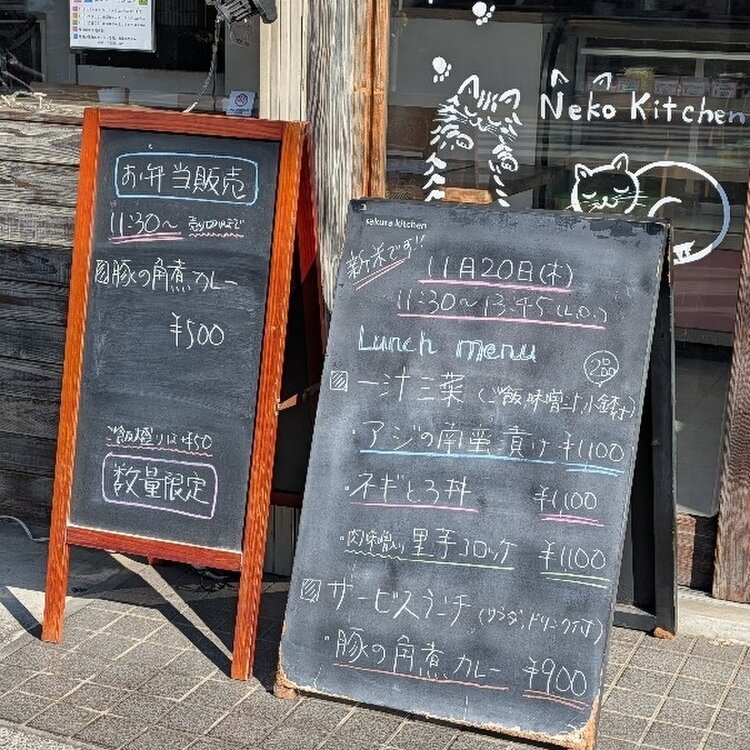 Neko Kitchen
お弁当販売
11:30〜 売切れまで
豚の角煮カレー
¥500
ご飯大盛りは+¥50
数量限定
sakura kitchen
新米です!!
11月20日(木)
11:30〜13:45(L.O.)
Lunch menu
一汁三菜(ご飯,味噌汁,小鉢2品付)
・アジの南蛮漬け ¥1,100
・ネギとろ丼 ¥1,100
・肉味噌入り里芋コロッケ ¥1100
サービスランチ(サラダ,ドリンク付)
・豚の角煮カレー ¥900